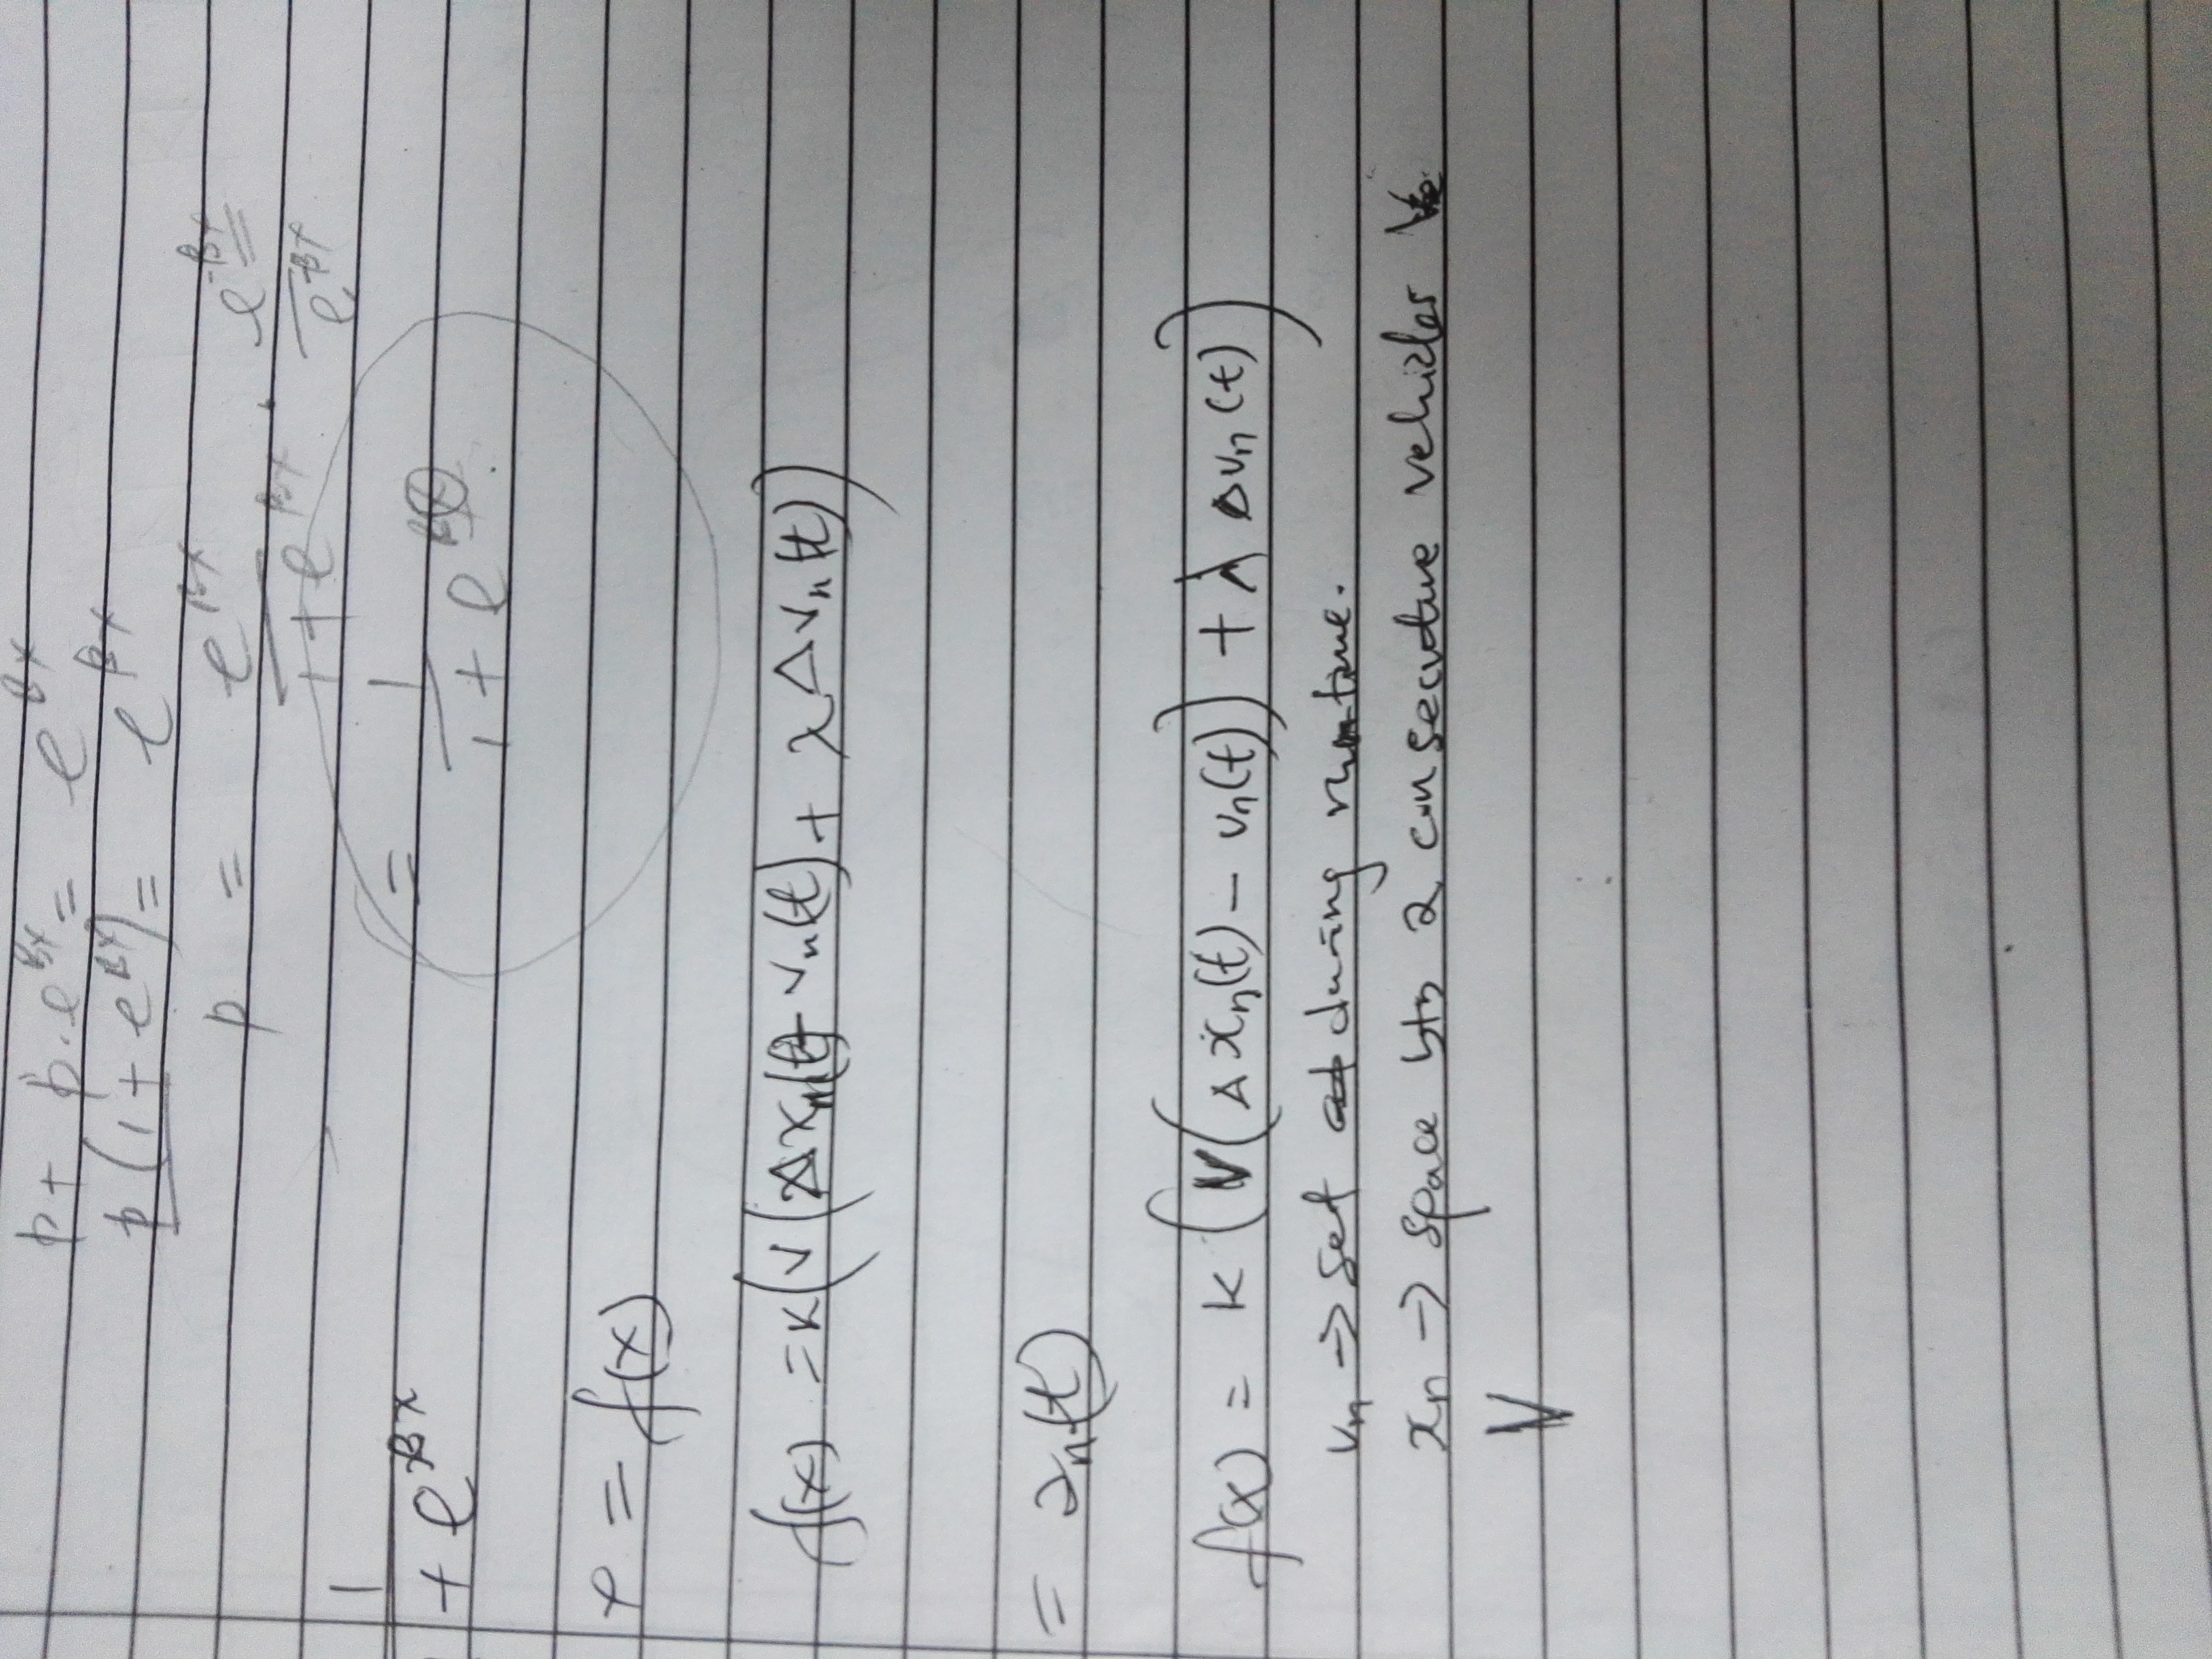 p + p.e^βx = e^βx
p(1 + e^βx) = e^βx
p = e^βx / 1 + e^βx . e^-βx / e^-βx
1 / + e^βx
= 1 / 1 + e^βx
= f(x)
f(x) = K(V(Δxn(t) - vn(t)) + λΔvn(t))
= an(t)
f(x) = K(V(Δxn(t) - vn(t)) + λΔvn(t))
vn → set during runtime.
xn → space btn 2 consecutive vehicles
V